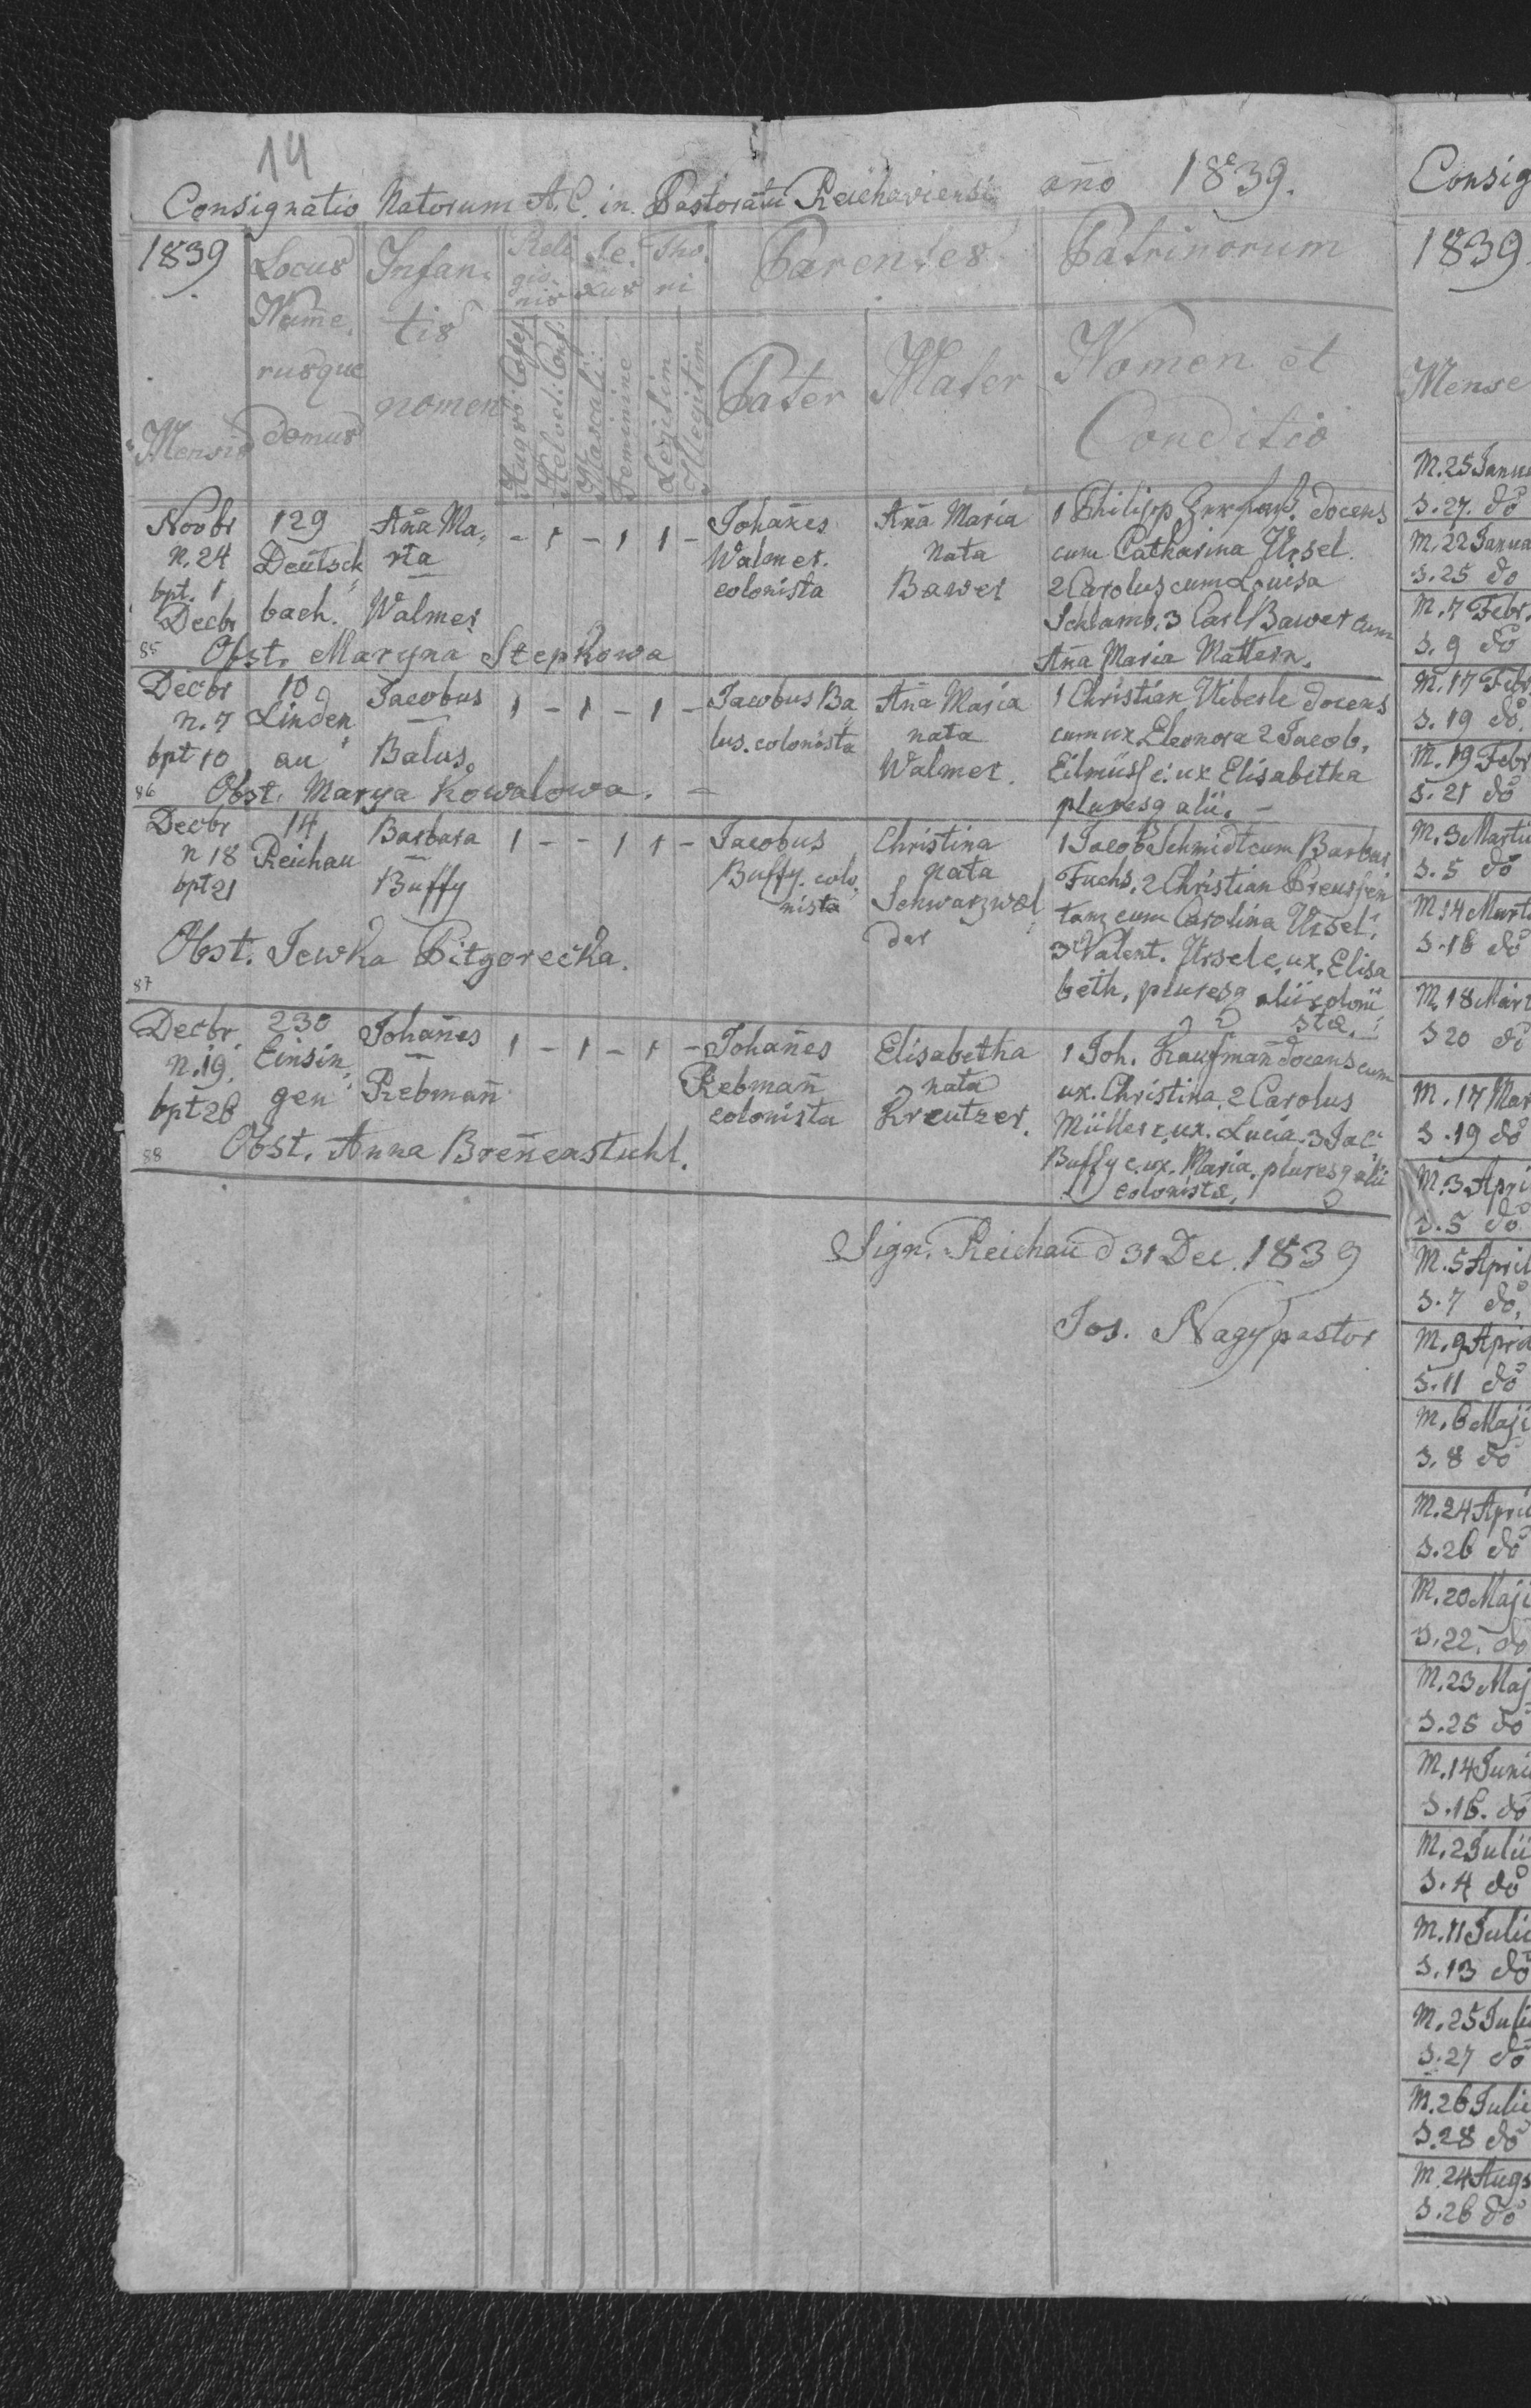 14
Consignatio Natorum A.C. in Pastoratu Reichaviensi año 1839.
1839
Mensis
Locus
Nume,
rusque
domus
Infan,
tis
nomen
Reli
gio
nis
Se,
xus
Tho,
ri
August: Confes
Helvet: Conf
Masculi:
Feminine
Legitim
Illegitim
Parentes
Pater
Mater
Patrinorum
Nomen et
Conditio
Novbr
n. 24
bpt. 1
Decbr
129
Deutsch
bach.
Aña Ma,
ria
Walmer
- 1 - 1 1 -
Johañes
Walmer.
colonista
Aña Maria
nata
Bawer
1 Philipp docens
cum Catharina Ursel.
2 Carolus cum Louisa
Schlamb. 3 Carl Bawer cum
Aña Maria Mattern.
85 Obst. Maryna Stepkowa
Decbr
n. 7
bpt 10
10
Linden
au
Jacobus
Balus.
1 - 1 - 1 -
Jacobus Ba
lus. colonista
Aña Maria
nata
Walmer.
1 Christian docens
cum ux. Eleonora 2 Jacob.
c: ux Elisabetha
pluresq alii. -
86 Obst. Marya Kowalowa. -
Decbr
n 18
bpt 21
14
Reichau
Barbara
Buffy
1 - - 1 1 -
Jacobus
Buffy. colo,
nista
Christina
nata
Schwarzwäl
der
1 Jacob Schmidt cum Barbar
Fuchs. 2 Christian
cum Carolina Ursel.
3 Valent. Ursel c. ux. Elisa
beth, pluresq alii coloni
stæ.
Obst. Jewka Pitgorecka.
87
Decbr.
n. 19.
bpt 26
230
Einsin,
gen
Johañes
Rebmañ
1 - 1 - 1 -
Johañes
Rebmañ
colonista
Elisabetha
nata
Kreutzer.
1 Joh. Kaufmañ docens cum
ux. Christina. 2 Carolus
Müller c. ux. Lucia. 3 Jac:
Buffy c. ux. Maria. pluresq alii
colonistæ.
88 Obst. Anna Breñenstuhl.
Sign. Reichau d 31 Dec. 1839
Jos. Nagy pastor
Consig
1839.
Mense
M. 25 Janu
S. 27. do
M. 22 Janua
S. 25 do
M. 7 Febr.
S. 9 do
M. 17 Febr
S. 19 do.
M. 19 Febr
S. 21 do
M. 3 Marti
S. 5 do
M 14 Marti
S. 16 do
M. 18 Mart
S 20 do
M. 17 Mar
S. 19 do
M. 3 Apri
S. 5 do
M. 5 April
S. 7 do,
M. 9 Apri
S. 11 do
M. 6 Maji
S. 8 do
M. 24 Apri
S. 26 do
M. 20 Maji
S. 22. do
M. 23 Maj
S. 26 do
M. 14 Juni
S. 16. do
M. 2 Julii
S. 4 do
M. 11 Juli
S. 13 do
M. 25 Juli
S. 27 do
M. 26 Julii
S. 28 do
M. 24 Augs
S. 26 do